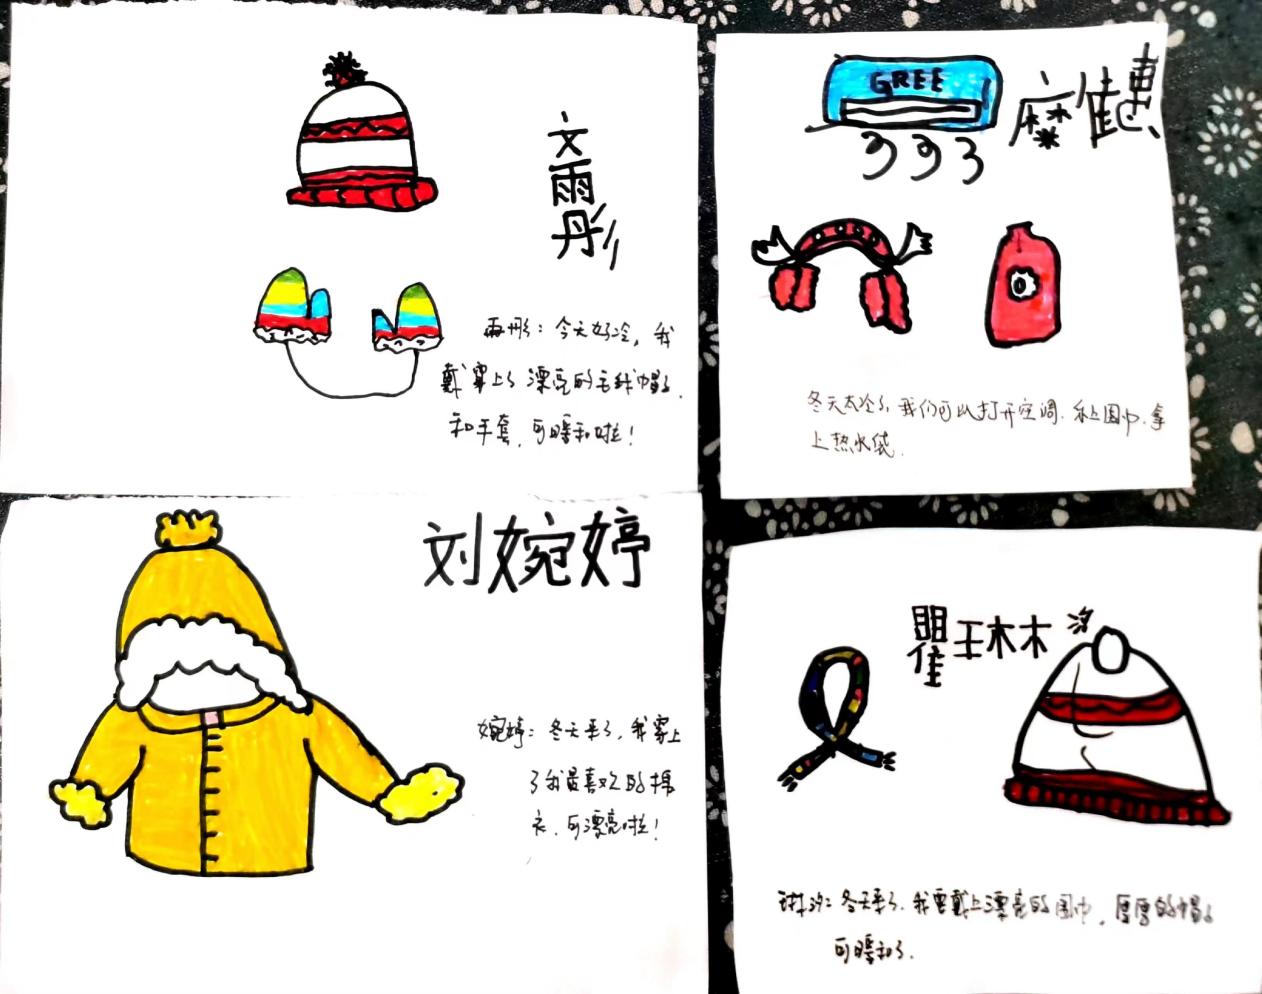 文雨彤
雨彤：今天好冷，我
戴穿上了漂亮的毛线帽子.
和手套，可暖和啦！
GREE
冬天太冷了，我们可以打开空调. 围巾. 拿
上热水袋.
刘婉婷
婉婷：冬天来了，我穿上
了我最喜欢的棉
衣，可漂亮啦！
瞿琳汐
琳汐：冬天来了. 我要戴上漂亮的围巾，厚厚的帽子
可暖和了.